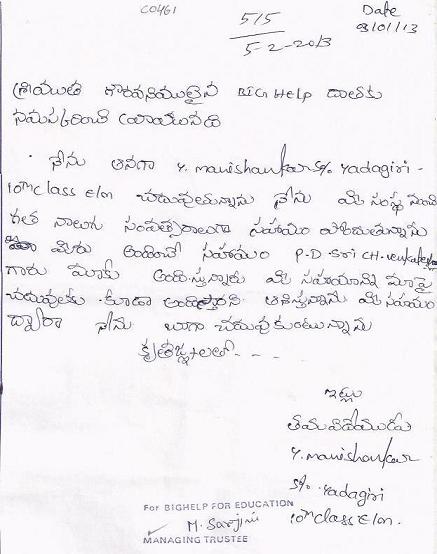 C0461
515
5-2-2013
Date
03/01/13
శ్రీయుత గౌరవనీయులైన BIG Help దాతకు
నమస్కరించి వ్రాయునది
నేను అనగా Y. Manishankar S/o Yadagiri -
10th Class E/m చదువుతున్నాను నేను మీ సంస్థ నుండి
గత నాలుగు సంవత్సరాలుగా సహాయం పొందుతున్నాను
మీరు అందించే సహాయం P.D Sri CH. Venkatesh
గారు మాకు అందిస్తున్నారు మీ సహాయాన్ని మా పై
చదువులకు కూడా అందిస్తారని ఆశిస్తున్నాను మీ సహాయం
ద్వారా నేను బాగా చదువుకుంటున్నాను
కృతజ్ఞతలతో - - -
ఇట్లు
తమ విధేయుడు
Y. Manishankar
S/o. Yadagiri
10th Class E/m.
For BIGHELP FOR EDUCATION
M. Sarojini
MANAGING TRUSTEE